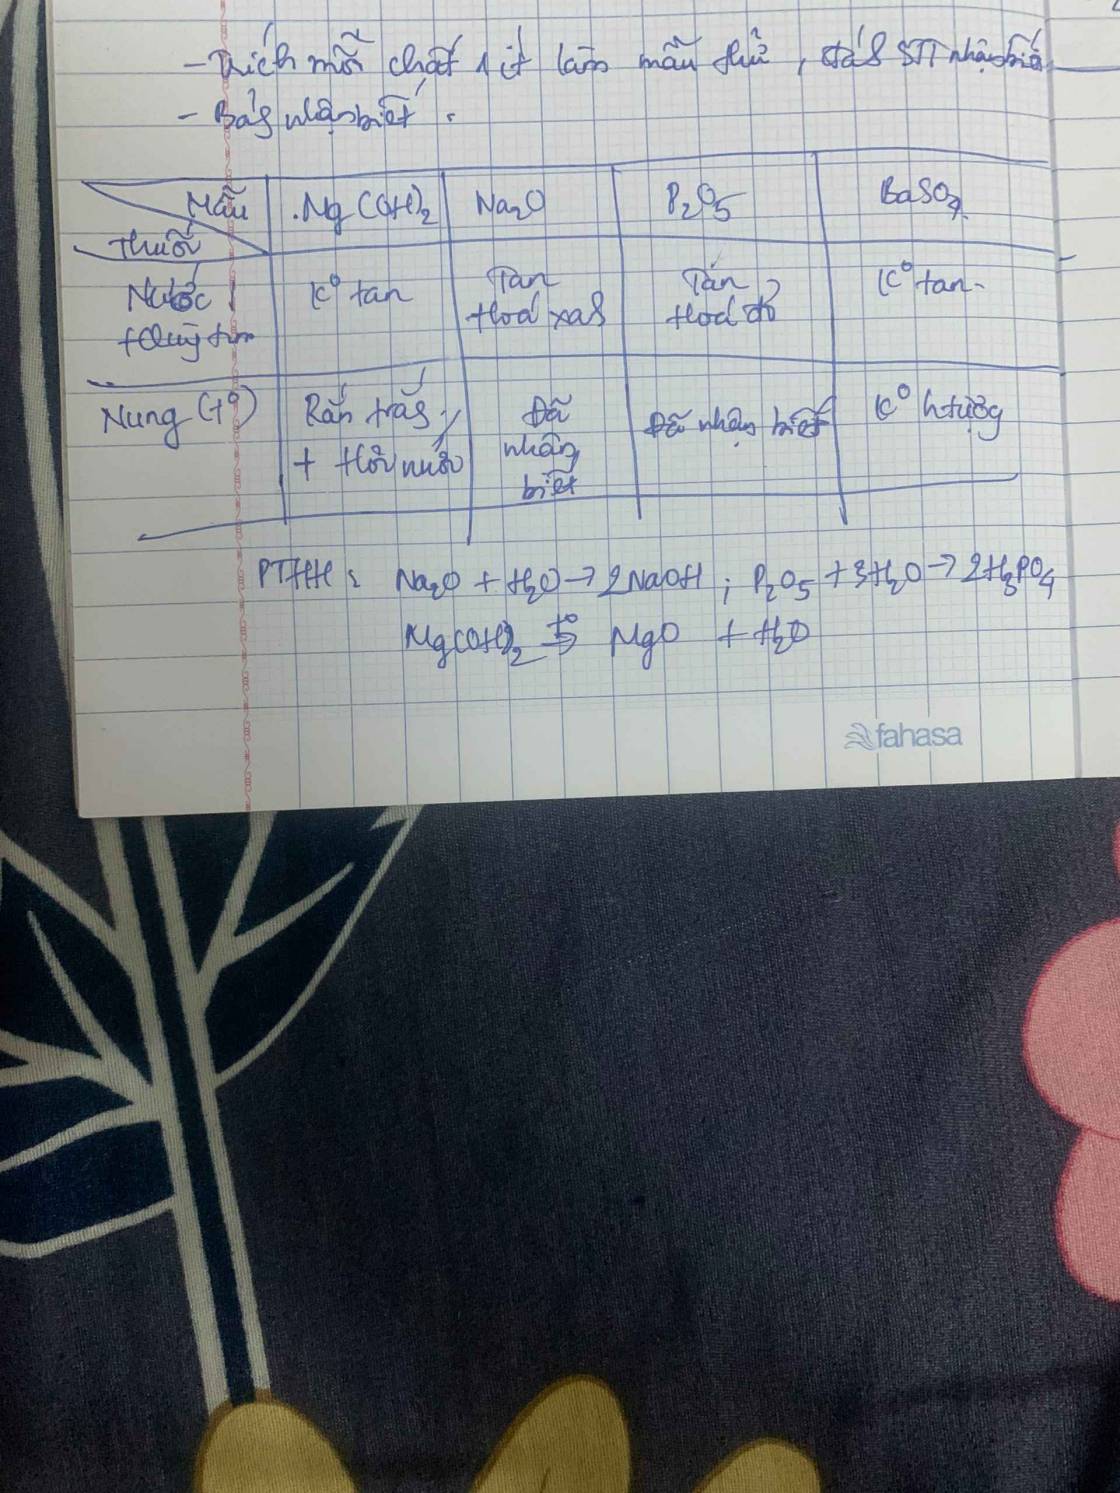 - Trích mỗi chất 1 ít làm mẫu thử, đánh STT nhận biết
- Bảng nhận biết:
Mẫu Mg(OH)2 Na2O P2O5 BaSO4
Thuốc
Nước + Quỳ tím K° tan Tan Hoá xanh Tan Hoá đỏ K° tan
Nung (t°) Rắn trắng + Hơi nước Đã nhận biết Đã nhận biết K° h tượng
PTHH: Na2O + H2O → 2NaOH ; P2O5 + 3H2O → 2H3PO4
Mg(OH)2 t° → MgO + H2O
fahasa